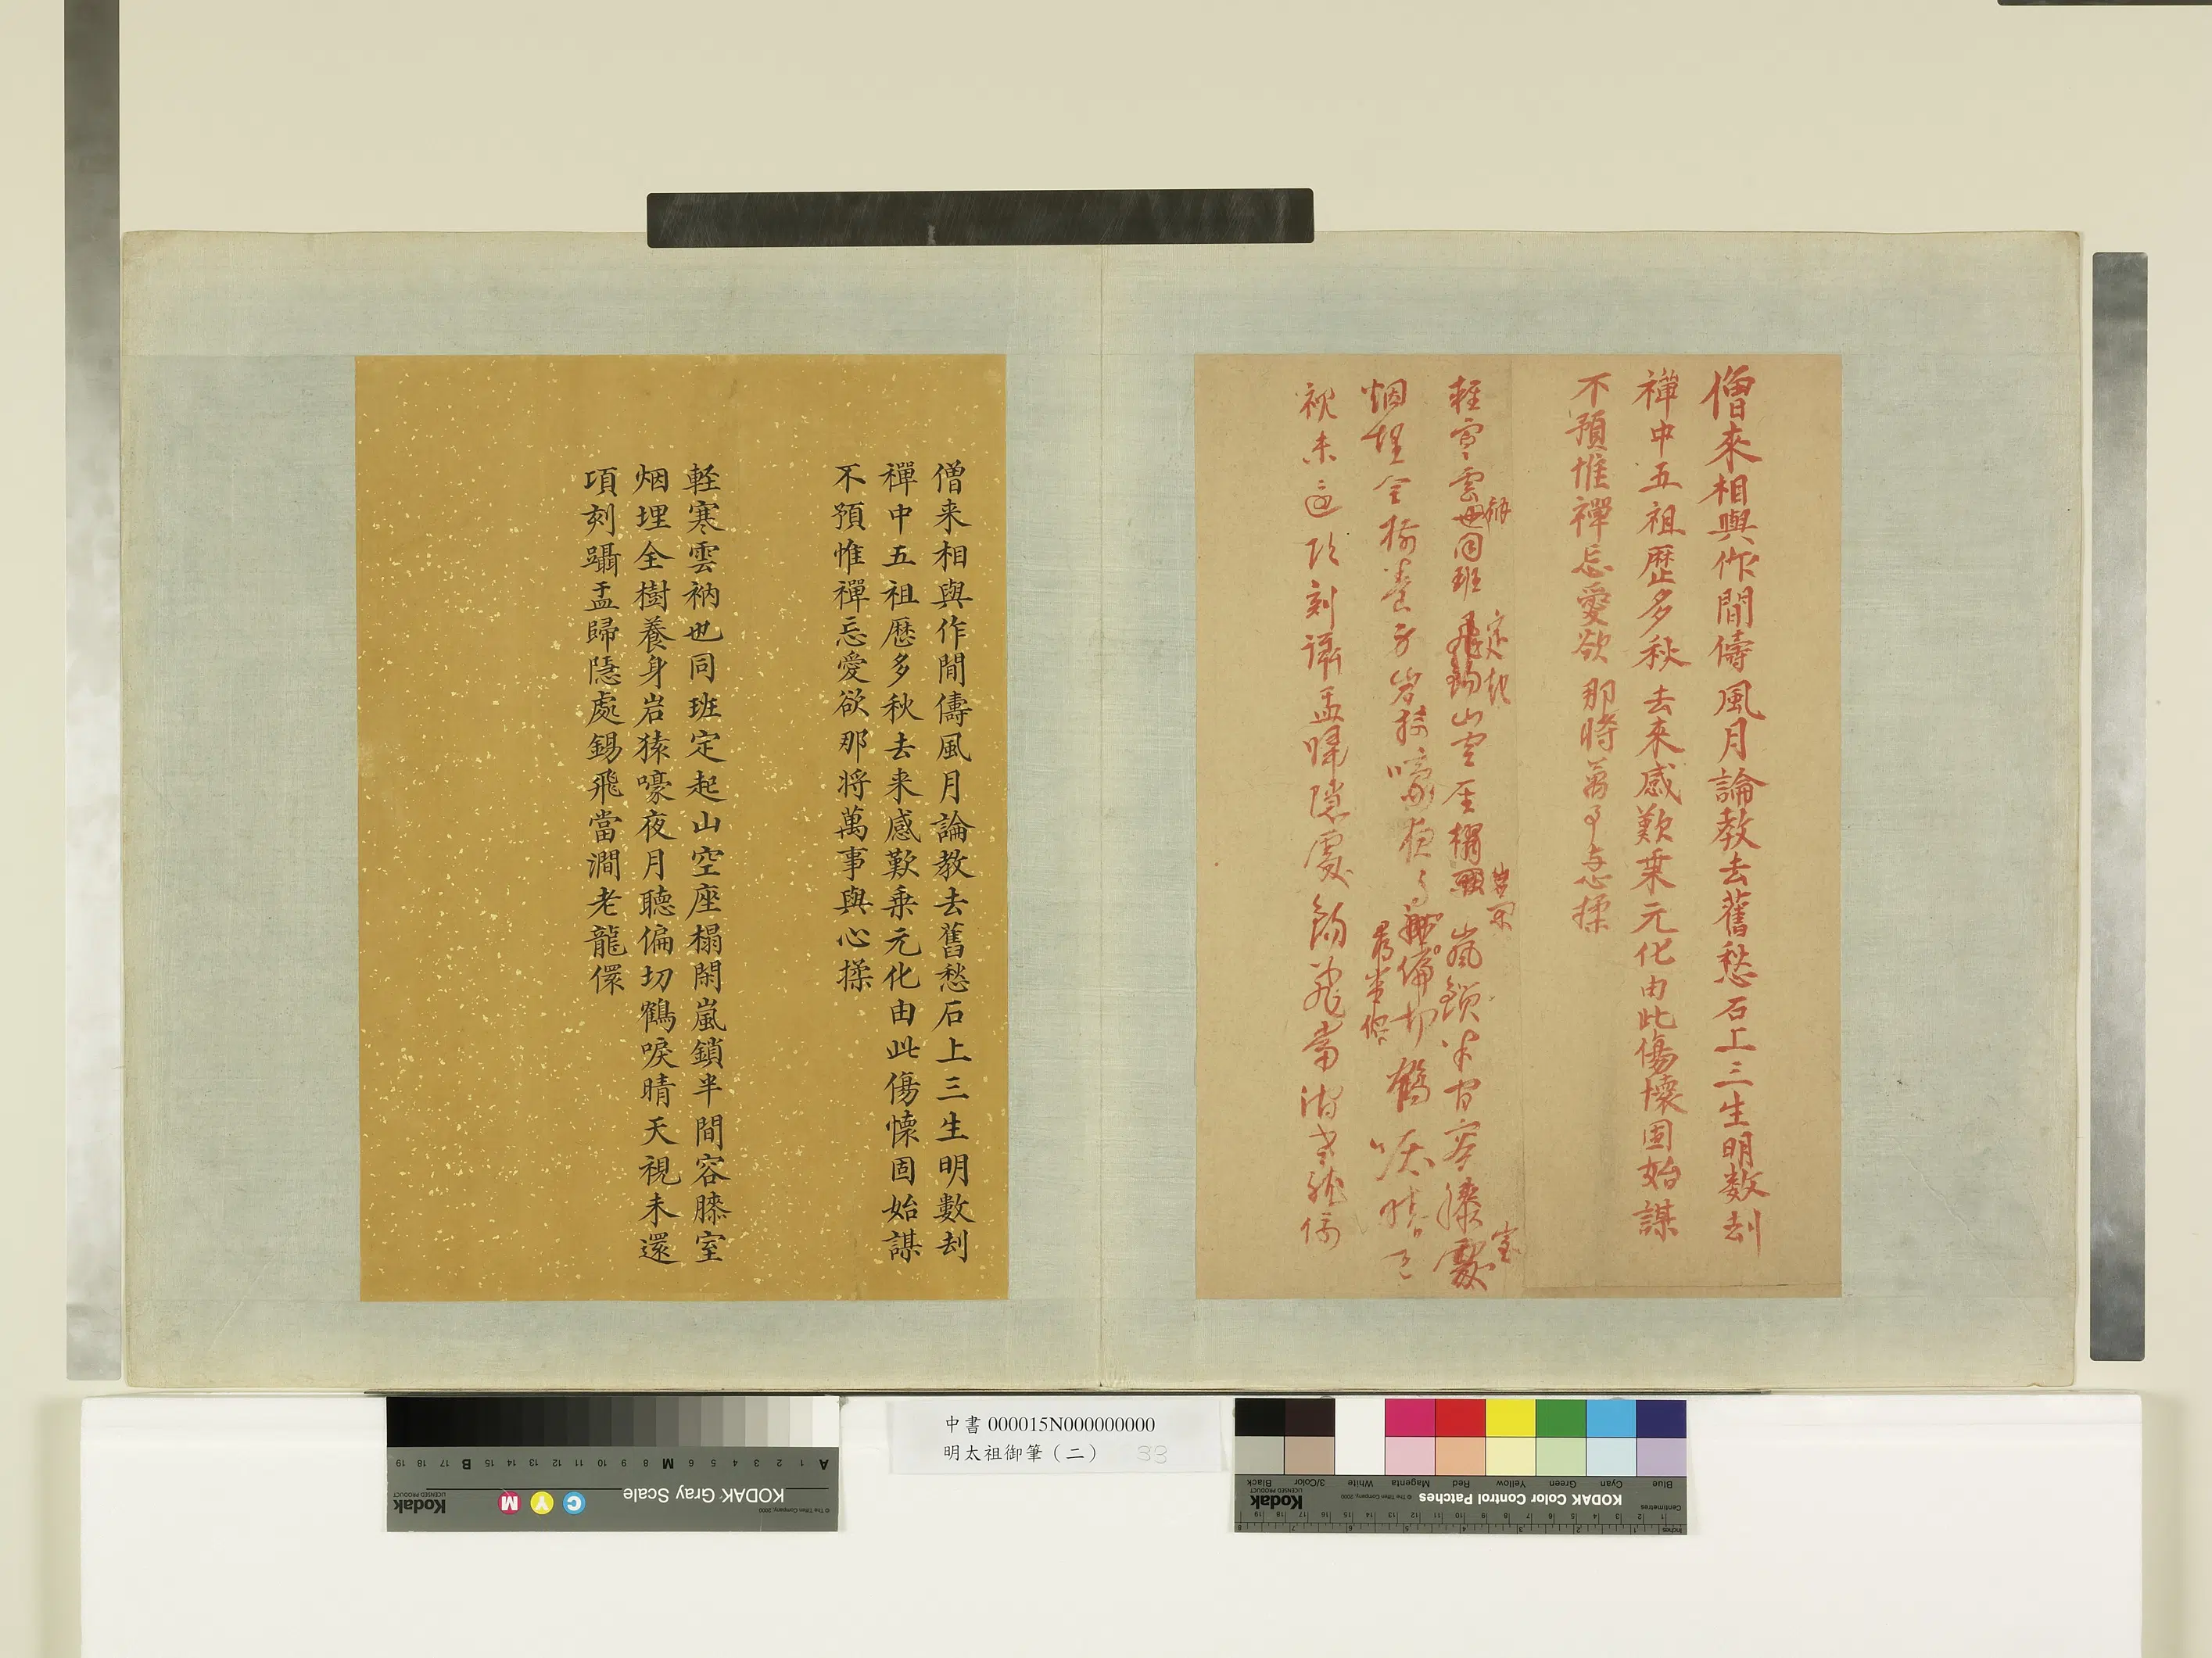 僧來相與作間儔風月論教去舊愁石上三生明数刦
禪中五祖歷多秋去來感歎乗元化由此傷懷固始謀
不預惟禪忘愛欲那時萬事与心揉
輕寒雲衲也同班定起山空座榻閑嵐鎖半间容膝室
烟埋全樹養身岩猿嚎夜月聽偏切鶴唳晴天
視未還頃刻躡盂歸隱處錫飛當澗老龍還
僧来相與作間儔風月論教去舊愁石上三生明數刦
禪中五祖歷多秋去来感歎乗元化由此傷懐固始謀
不預惟禪忘愛欲那将萬事與心揉
輊寒雲衲也同班定起山空座榻閑嵐鎖半間容膝室
烟埋全樹養身岩猿嚎夜月聽偏切鶴唳晴天視未還
項刻躡盂歸隱處錫飛當澗老龍儇
中書 000015N000000000
明太祖御筆（二） 33
KODAK Gray Scale
Kodak
LICENSED PRODUCT
© The Tiffen Company, 2000
C Y M
A 1 2 3 4 5 6 M 8 9 10 11 12 13 14 15 B 17 18 19
KODAK Color Control Patches
Kodak
LICENSED PRODUCT
© The Tiffen Company, 2000
Blue Cyan Green Yellow Red Magenta White 3/Color Black
Centimetres
Inches